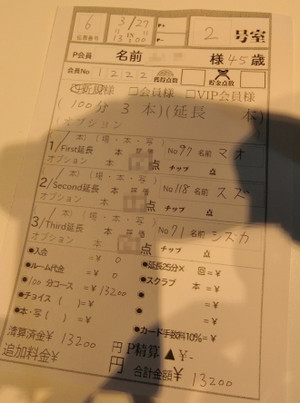 6 3/27 2 号室
伝票番号 13:00
P会員 名前 様 45歳
会員No 1222 獲得点数 貯金点数
新規様 □会員様 □VIP会員様
(100分 3本)(延長 本)
オプション
1/ (場・本・写) No 97 名前 マオ
First延長 本 採価 点 チップ 点
オプション
2/ (場・本・写) No 118 名前 スズ
Second延長 本 採価 点 チップ 点
オプション
3/ (場・本・写) No 71 名前 シズカ
Third延長 本 点 チップ 点
オプション
●入会 =¥ 0 ●延長25分× 回=¥
●ルーム代金 =¥ 0 ●スクラブ 本 =¥
●100分コース=¥ 13200
●チョイス( )=¥
●本・写( )=¥ ●カード手数料10%=¥
清算済金¥ 13200 円 P精算 ▲¥-
追加料金¥ 円 合計金額¥ 13200